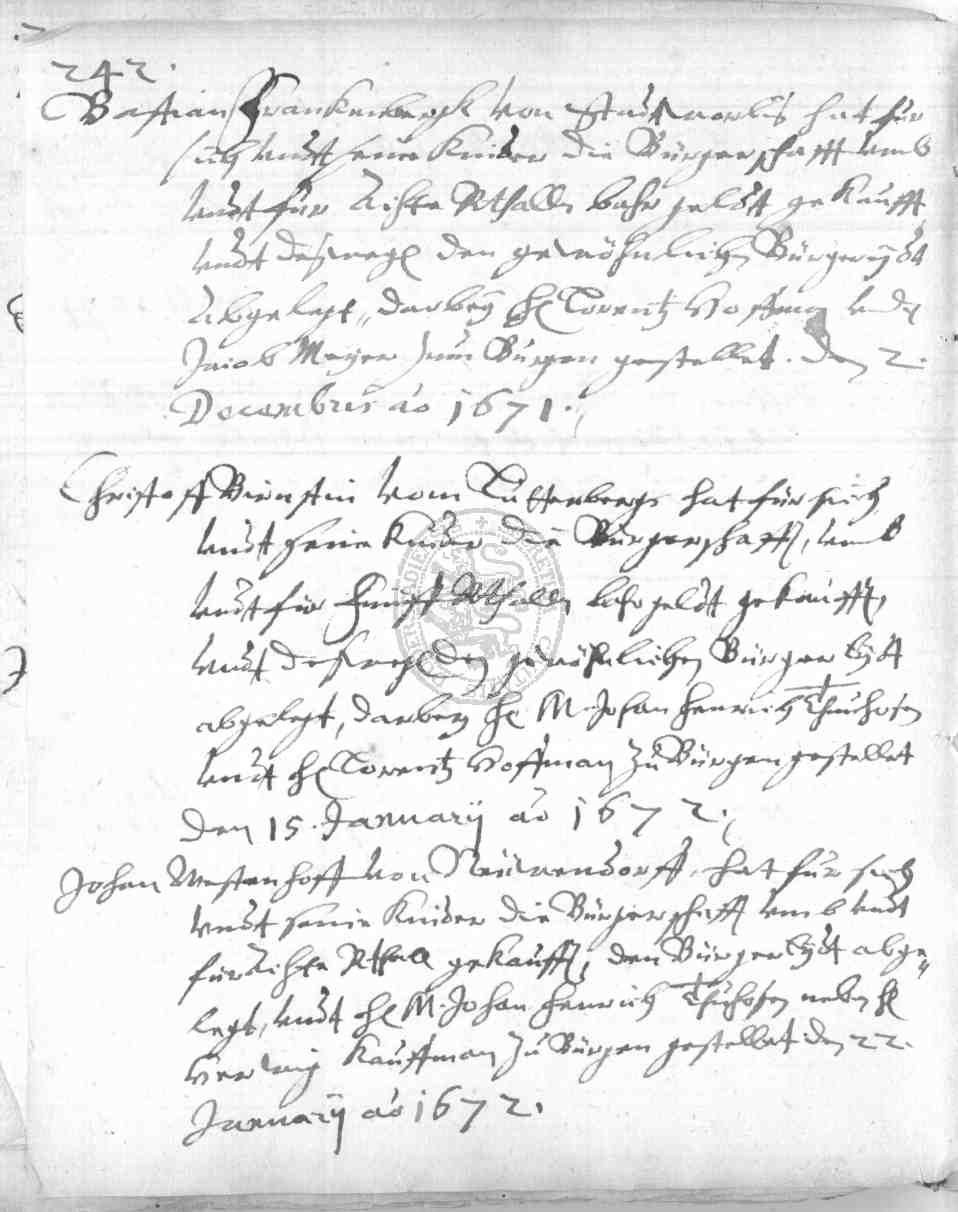 242.
Bastian Franckenbergk von Stadtworbis hat für
sich undt seine Kinder die Bürgerschafft umb
undt für Achte Rthall bahr geldt gekaufft
undt deswegen den gewöhnlichen Bürgereydt
Abgelegt, darbey H. Lorentz Hoffman und
Jacob Meyer zum Bürgen gestellet. den 2.
Decembris ao 1671.
Christoff Birnstin vom Lutterberge hat für sich
undt seine Kinder die Bürgerschafft, umb
undt für Funff Rthall bahr geldt gekaufft,
undt deswegen den gewöhnlichen Bürger Eydt
abgelegt, darbey H. M. Johan Henrich
undt H. Lorentz Hoffman zu Bürgen gestellet
den 15. Januarij ao 1672.
Johan Westenhoff von Neuwendorff, hat für sich
undt seine Kinder die Bürgerschafft umb undt
für Achte Rthall gekaufft, den Bürger Eydt abge=
legt, undt H. M. Johan Henrich neben H.
Kauffman zu Bürgen gestellet den 22.
Januarij ao 1672.